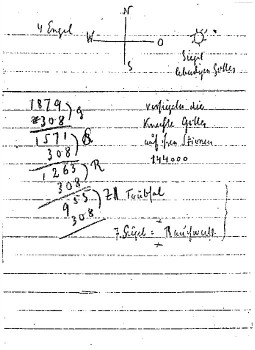 4 Engel
N
W O
S
Siegel
lebendigen Gottes
1879
308
1571
308
1263 R
308
955
308
versiegeln die
Knechte Gottes
auf ihren Stirnen
144000
Trübsal
7. Siegel =